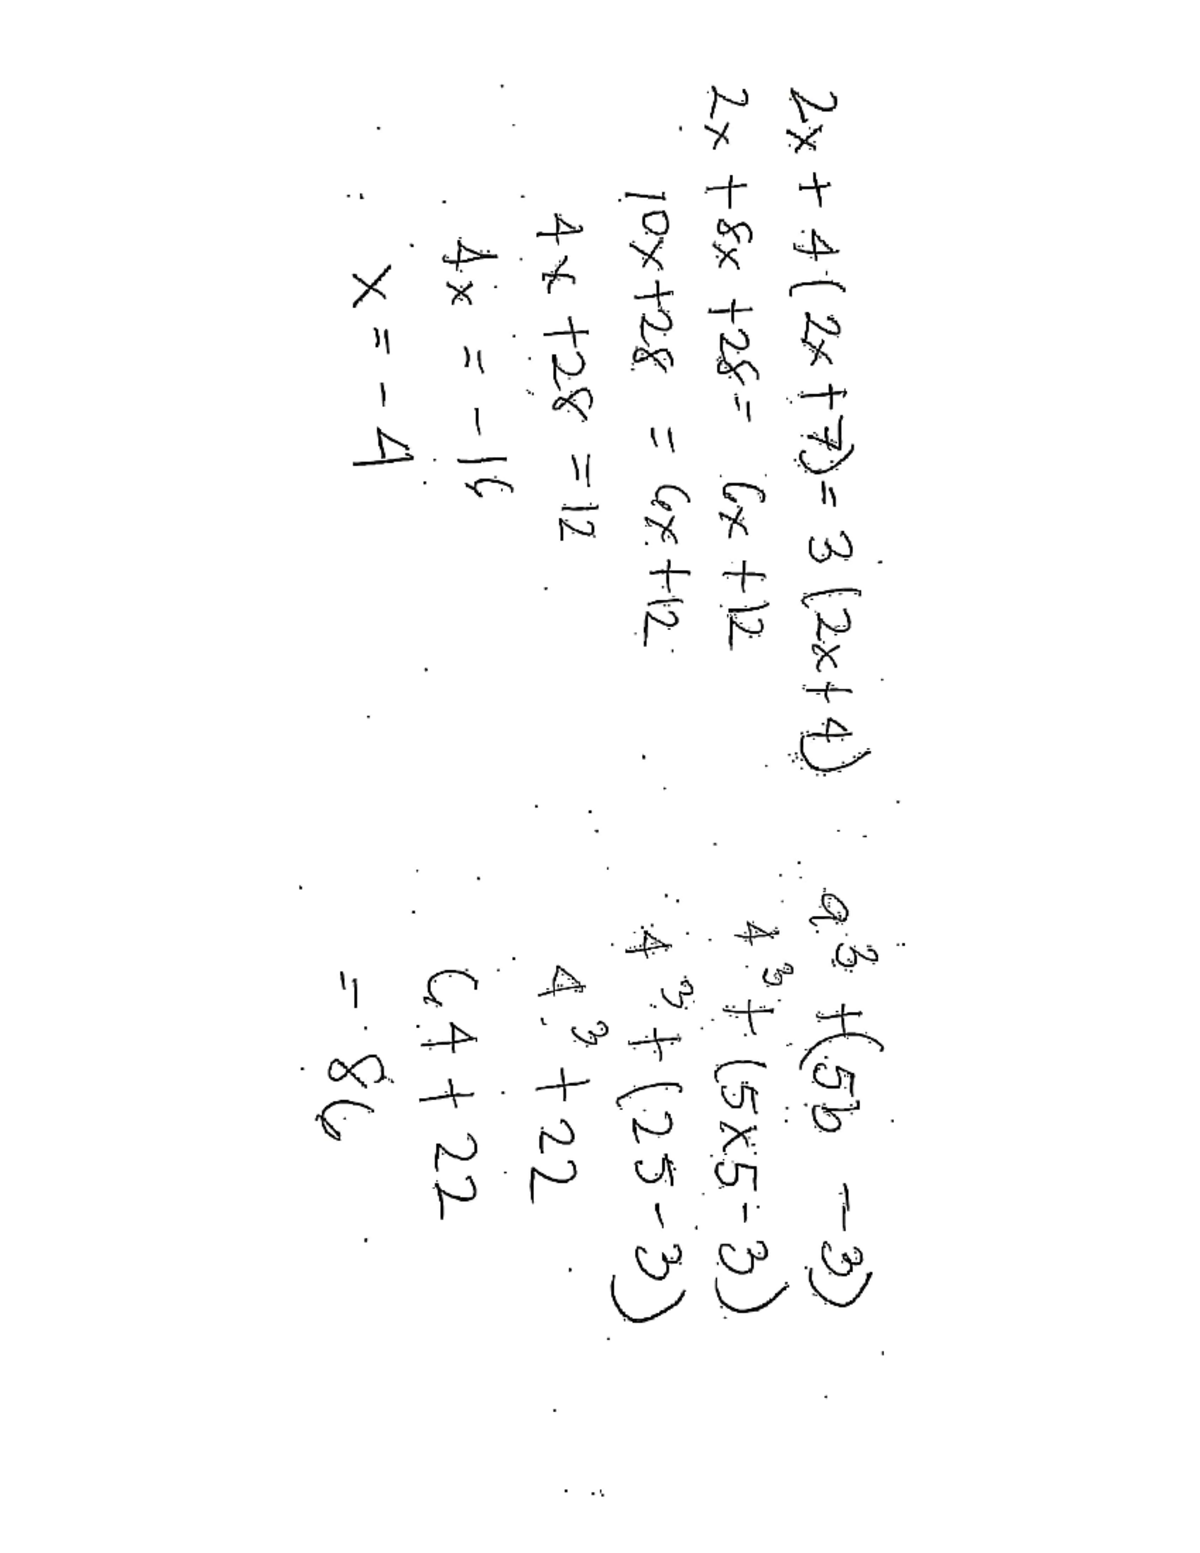 2x + 4(2x+7) = 3(2x+4)
2x + 8x + 28 = 6x + 12
10x + 28 = 6x + 12
4x + 28 = 12
4x = -16
x = -4
a³ + (5b - 3)
4³ + (5×5-3)
4³ + (25-3)
4³ + 22
64 + 22
= 86